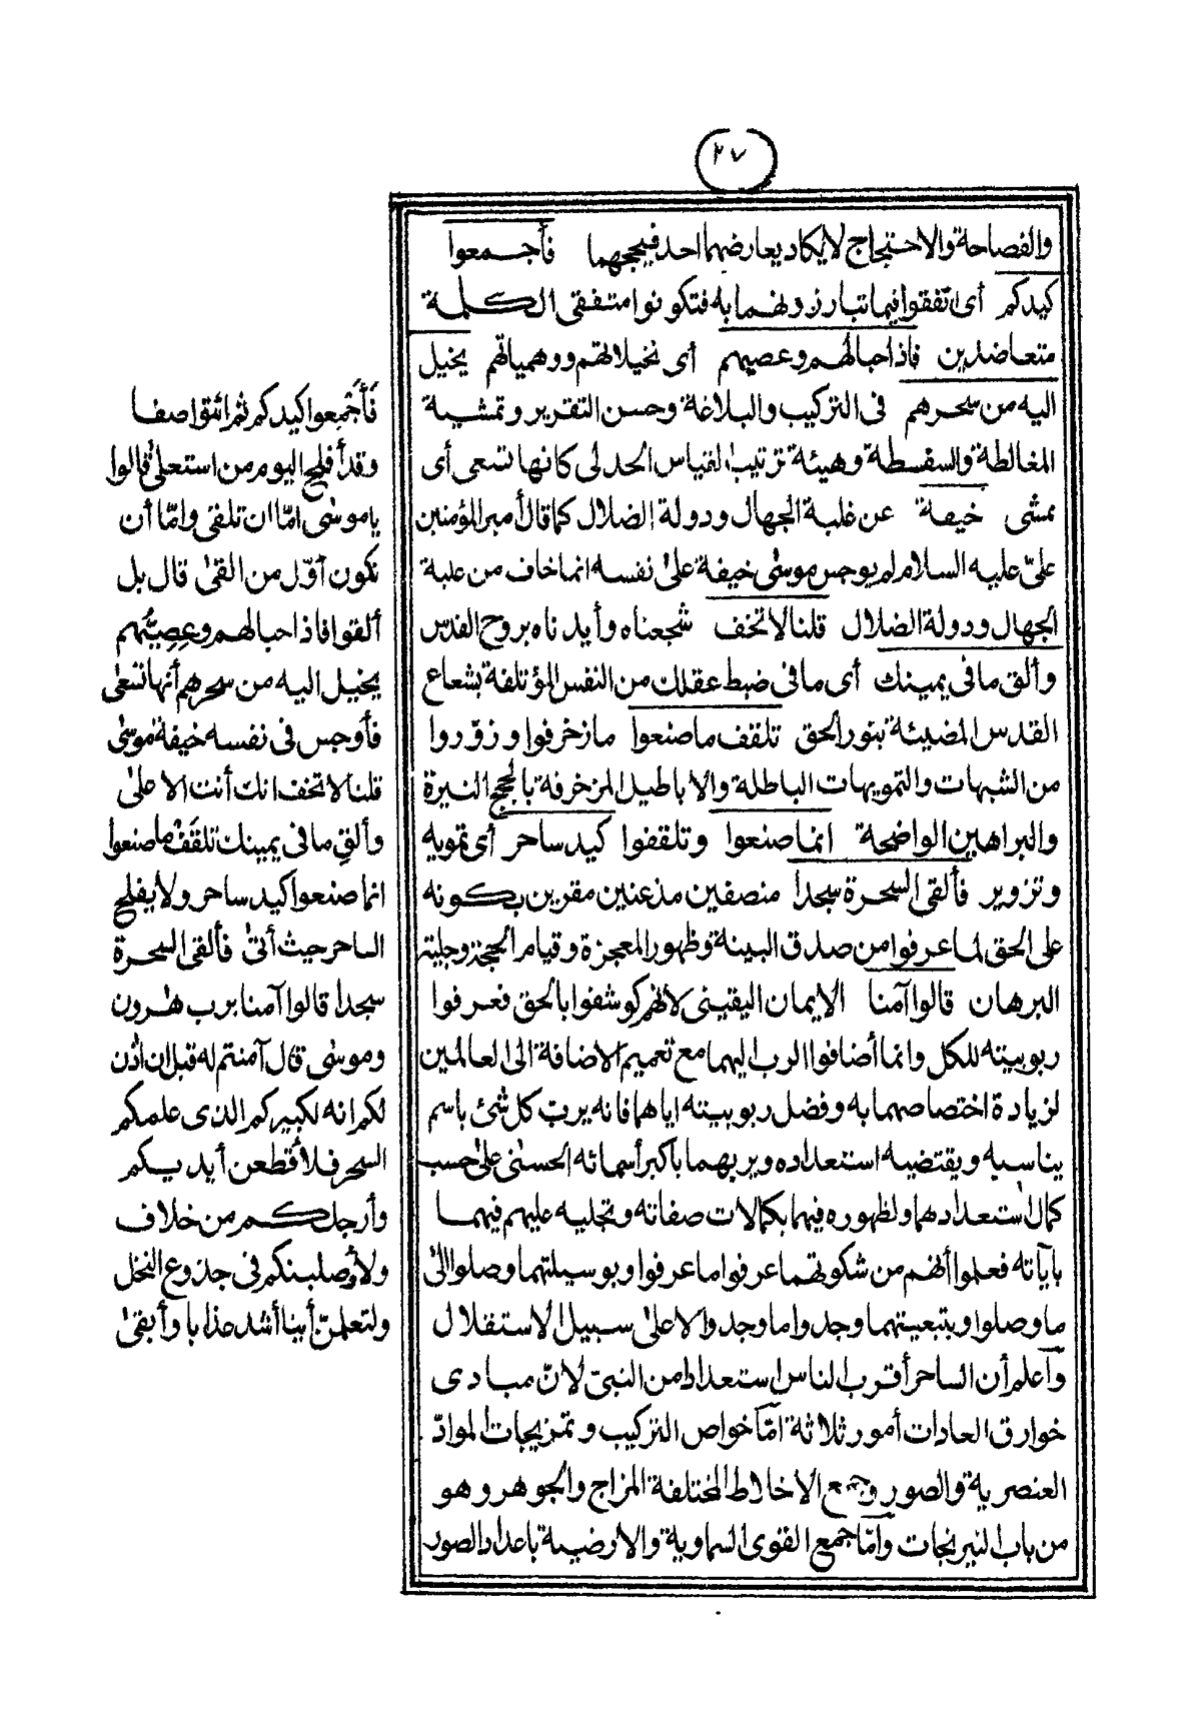 ٢٧
والفصاحة والاحتجاج لا يكاد يعارضهما احد فيحججهما فأجمعوا
كيدكم أى اتفقوا فيما تبارزونهما به فتكونوا متفقى الكلمة
متعاضدين فاذا حبالهم وعصيهم أى تخيلاتهم ووهمياتهم يخيل
اليه من سحرهم فى التركيب والبلاغة وحسن التقرير وتمشية
المغالطة والسفسطة وهيئة ترتيب القياس الجدلى كانها تسعى أى
تمشى خيفة عن غلبة الجهال ودولة الضلال كما قال أمير المؤمنين
علىّ عليه السلام لم يوجس موسى خيفة على نفسه انما خاف من غلبة
الجهال ودولة الضلال قلنا لا تخف شجعناه وأيدناه بروح القدس
وألق ما فى يمينك أى ما فى ضبط عقلك من النفس المؤتلفة بشعاع
القدس المضيئة بنور الحق تلقف ما صنعوا ما زخرفوا وزوّروا
من الشبهات والتمويهات الباطلة والاباطيل المزخرفة بالحجج النيرة
والبراهين الواضحة انما صنعوا وتلقفوا كيد ساحر أى تمويه
وتزوير فألقى السحرة سجدا منصفين مذعنين مقرين بكونه
على الحق لما عرفوا من صدق البينة وظهور المعجزة وقيام الحجة وجلية
البرهان قالوا آمنا الإيمان اليقينى لانهم كوشفوا بالحق فعرفوا
ربوبيته للكل وانما أضافوا الرب اليهما مع تعميم الاضافة الى العالمين
لزيادة اختصاصهما به وفضل ربوبيته اياهما فانه يرب كل شئ باسم
يناسبه ويقتضيه استعداده ويربهما بأكبر أسمائه الحسنى على حسب
كمال استعدادهما ولظهوره فيهما بكمالات صفاته وتجليه عليهم فيهما
بآياته فعلموا أنهم من شكوتهما عرفوا ما عرفوا وبوسيلتهما وصلوا الى
ما وصلوا وبتبعيتهما وجدوا ما وجدوا لا على سبيل الاستقلال
واعلم أن الساحر أقرب الناس استعدادا من النبىّ لانّ مبادى
خوارق العادات أمور ثلاثة امّا خواص التركيب وتمزيجات الموادّ
العنصرية والصور وجمع الاخلاط المختلفة المزاج والجوهر وهو
من باب النيرنجات وامّا جمع القوى السماوية والارضية باعداد الصور
فَأَجْمِعوا كيدكم ثم ائتوا صفا
وقد أفلح اليوم من استعلى قالوا
يا موسى امّا ان تلقى وامّا أن
نكون أوّل من القى قال بل
ألقوا فاذا حبالهم وعِصِيُّهم
يخيل اليه من سحرهم أنها تسعى
فأوجس فى نفسه خيفة موسى
قلنا لا تخف انك أنت الاعلى
وألقِ ما فى يمينك تلقَفْ ما صنعوا
انما صنعوا كيد ساحر ولا يفلح
الساحر حيث أتى فألقى السحرة
سجدا قالوا آمنا برب هٰرون
وموسى قال آمنتم له قبل ان اذن
لكم انه لكبيركم الذى علمكم
السحر فلأقطعن أيديكم
وأرجلكم من خلاف
ولأصلبنكم فى جذوع النخل
ولتعلمنّ أينا أشد عذابا وأبقى